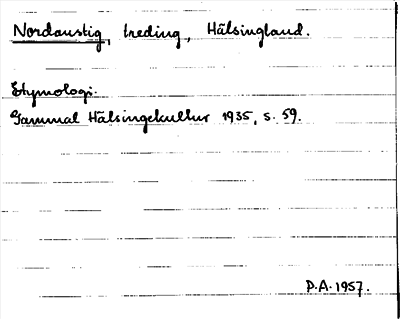 Nordanstig, treding, Hälsingland.
Etymologi:
Gammal Hälsingekultur 1935, s. 59.
P.A. 1957.